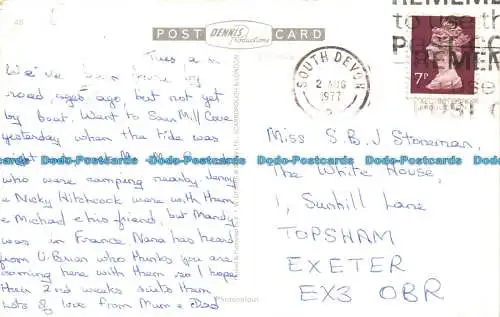 45
POST DENNIS Productions CARD
REMEMBER
to use the
POSTCO
REMEM
use
SOUTH DEVON
2 AUG
1977
7P
Tues a.m
We've been here by
road, ages ago, but not yet
by boat. Went to Soar Mill Cove
yesterday when the tide was
right
who were camping nearby. Jenny
& Nicky Hitchcock were with them
& Michael & his friend, but Mandy
was in France. Nana has heard
from U. Brian who thanks you are
coming here with them so I hope
their 2nd weeks suits them
Lots of love from Mum & Dad
Miss S. B. J Stoneman,
The White House,
1, Sunhill Lane
TOPSHAM
EXETER
EX3 0BR
Photocolour
Dodo-Postcards Dodo-Postcards Dodo-Postcards Dodo-Postcards